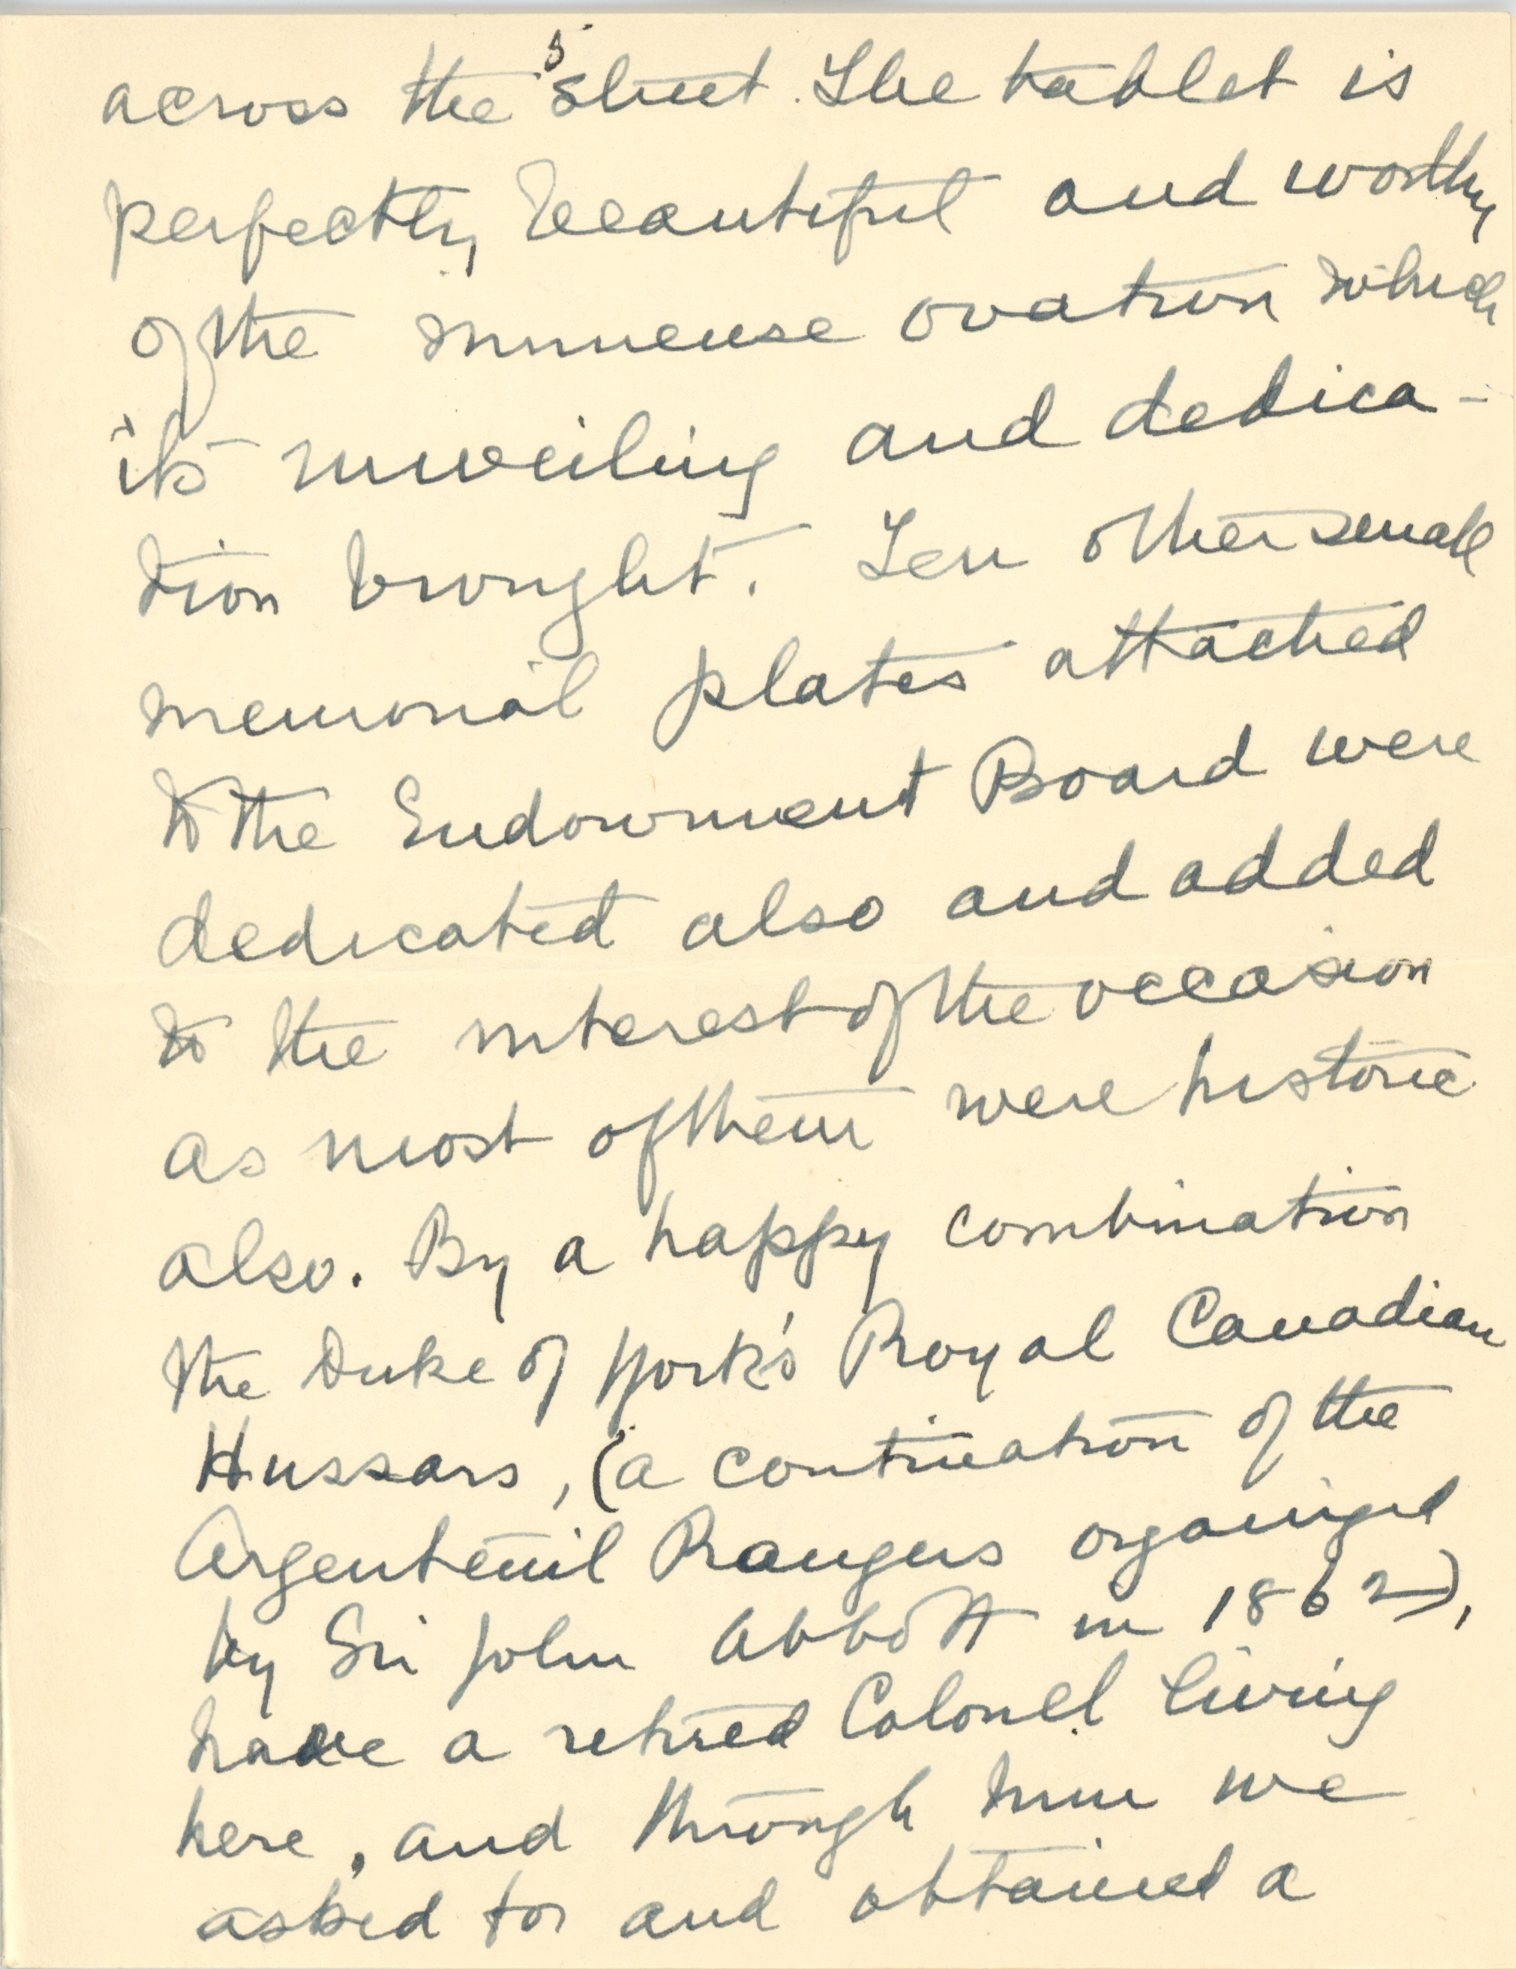 5
across the street. The tablet is
perfectly beautiful and worthy
of the immense ovation which
its unveiling and dedica-
tion brought. Ten other small
memorial plates attached
to the Endowment Board were
dedicated also and added
to the interest of the occasion
as most of them were historic
also. By a happy combination
the Duke of York's Royal Canadian
Hussars, (a continuation of the
Argenteuil Rangers organized
by Sir John Abbott in 1862),
have a retired Colonel living
here, and through him we
asked for and obtained a